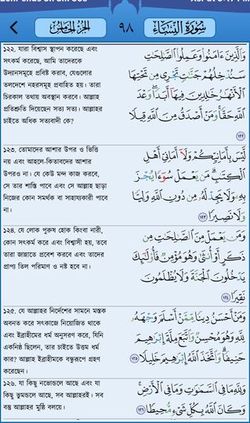 سُورَةُ النِّسَاءِ
٩٨
الجزء الخامس
১২২. যারা বিশ্বাস স্থাপন করেছে এবং
সৎকর্ম করেছে, আমি তাদেরকে
উদ্যানসমূহে প্রবিষ্ট করাব, যেগুলোর
তলদেশে নহরসমূহ প্রবাহিত হয়। তারা
চিরকাল তথায় অবস্থান করবে। আল্লাহ
প্রতিশ্রুতি দিয়েছেন সত্য সত্য। আল্লাহর
চাইতে অধিক সত্যবাদী কে?
وَالَّذِينَ ءَامَنُوا وَعَمِلُوا الصَّالِحَاتِ
سَنُدْخِلُهُمْ جَنَّاتٍ تَجْرِي مِن تَحْتِهَا
الْأَنْهَارُ خَالِدِينَ فِيهَا أَبَدًا وَعْدَ
اللَّهِ حَقًّا وَمَنْ أَصْدَقُ مِنَ اللَّهِ
قِيلًا ١٢٢
১২৩. তোমাদের আশার উপর ও ভিত্তি
নয় এবং আহলে-কিতাবদের আশার
উপরও না। যে কেউ মন্দ কাজ করবে,
সে তার শাস্তি পাবে এবং সে আল্লাহ ছাড়া
নিজের কোন সমর্থক বা সাহায্যকারী পাবে
না।
لَّيْسَ بِأَمَانِيِّكُمْ وَلَا أَمَانِيِّ أَهْلِ
الْكِتَابِ مَن يَعْمَلْ سُوءًا يُجْزَ
بِهِ وَلَا يَجِدْ لَهُ مِن دُونِ اللَّهِ وَلِيًّا
وَلَا نَصِيرًا ١٢٣
১২৪. যে লোক পুরুষ হোক কিংবা নারী,
কোন সৎকর্ম করে এবং বিশ্বাসী হয়, তবে
তারা জান্নাতে প্রবেশ করবে এবং তাদের
প্রাপ্য তিল পরিমাণ ও নষ্ট হবে না।
وَمَن يَعْمَلْ مِنَ الصَّالِحَاتِ مِن
ذَكَرٍ أَوْ أُنثَىٰ وَهُوَ مُؤْمِنٌ فَأُولَٰئِكَ
يَدْخُلُونَ الْجَنَّةَ وَلَا يُظْلَمُونَ
نَقِيرًا ١٢٤
১২৫. যে আল্লাহর নির্দেশের সামনে মস্তক
অবনত করে সৎকাজে নিয়োজিত থাকে
এবং ইব্রাহীমের ধর্ম অনুসরণ করে, যিনি
একনিষ্ঠ ছিলেন, তার চাইতে উত্তম ধর্ম
কার? আল্লাহ ইব্রাহীমকে বন্ধুরূপে গ্রহণ
করেছেন।
وَمَنْ أَحْسَنُ دِينًا مِّمَّنْ أَسْلَمَ وَجْهَهُ
لِلَّهِ وَهُوَ مُحْسِنٌ وَاتَّبَعَ مِلَّةَ إِبْرَاهِيمَ
حَنِيفًا وَاتَّخَذَ اللَّهُ إِبْرَاهِيمَ خَلِيلًا ١٢٥
১২৬. যা কিছু নভোন্ডলে আছে এবং যা
কিছু ভুমন্ডলে আছে, সব আল্লাহরই। সব
বস্তু আল্লাহর মুষ্ঠি বলয়ে।
وَلِلَّهِ مَا فِي السَّمَاوَاتِ وَمَا فِي الْأَرْضِ
وَكَانَ اللَّهُ بِكُلِّ شَيْءٍ مُّحِيطًا ١٢٦